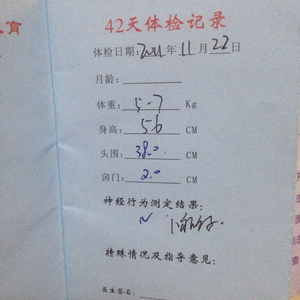 育
42天体检记录
体检日期:2021年11月22日
月龄:
体重: 5.7 Kg
身高: 56 CM
头围: 38.0 CM
囟门: 2.0 CM
神经行为测定结果:
特殊情况及指导意见:
医生签名: